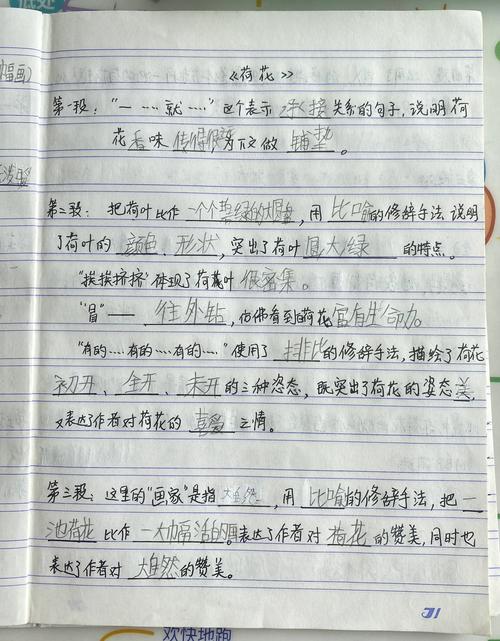 《荷花》
第一段："一……就……"这个表示 承接 关系的句子,说明荷
花香味 传得很远,为下文做 铺垫 。
第二段: 把荷叶比作 一个个碧绿的大圆盘,用 比喻的修辞手法 说明
了荷叶的 颜色、形状,突出了荷叶 圆大绿 的特点。
"挨挨挤挤"体现了荷叶 很密集。
"冒"—— 往外钻,仿佛看到荷花富有生命力。
"有的……有的……有的……"使用了 排比的修辞手法,描绘了荷花
初开、全开、未开的三种姿态,既突出了荷花的姿态美,
又表达了作者对荷花的 喜爱 之情。
第三段：这里的"画家"是指 大自然,用 比喻的修辞手法,把 一
池荷花 比作 一大幅活的画。表达了作者对 荷花 的赞美,同时也
表达了作者对 大自然的赞美。
欢快地跑